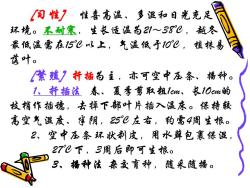 [习性] 性喜高温、多湿和日光充足
环境。不耐寒，生长适温为21~38℃，越冬
最低温需在15℃以上，气温低于10℃，植株易
落叶。
[繁殖]扦插为主，亦可空中压条、播种。
1、扦插法 春、夏季剪取粗1cm、长10cm的
枝梢作插穗，去掉下部叶片插入温床。保持较
高空气湿度、半阴，25℃左右，约需4周生根。
2、空中压条环状剥皮，用水藓包裹保湿，
27℃下，3周后即可生根。
3、播种法 杂交育种，随采随播。